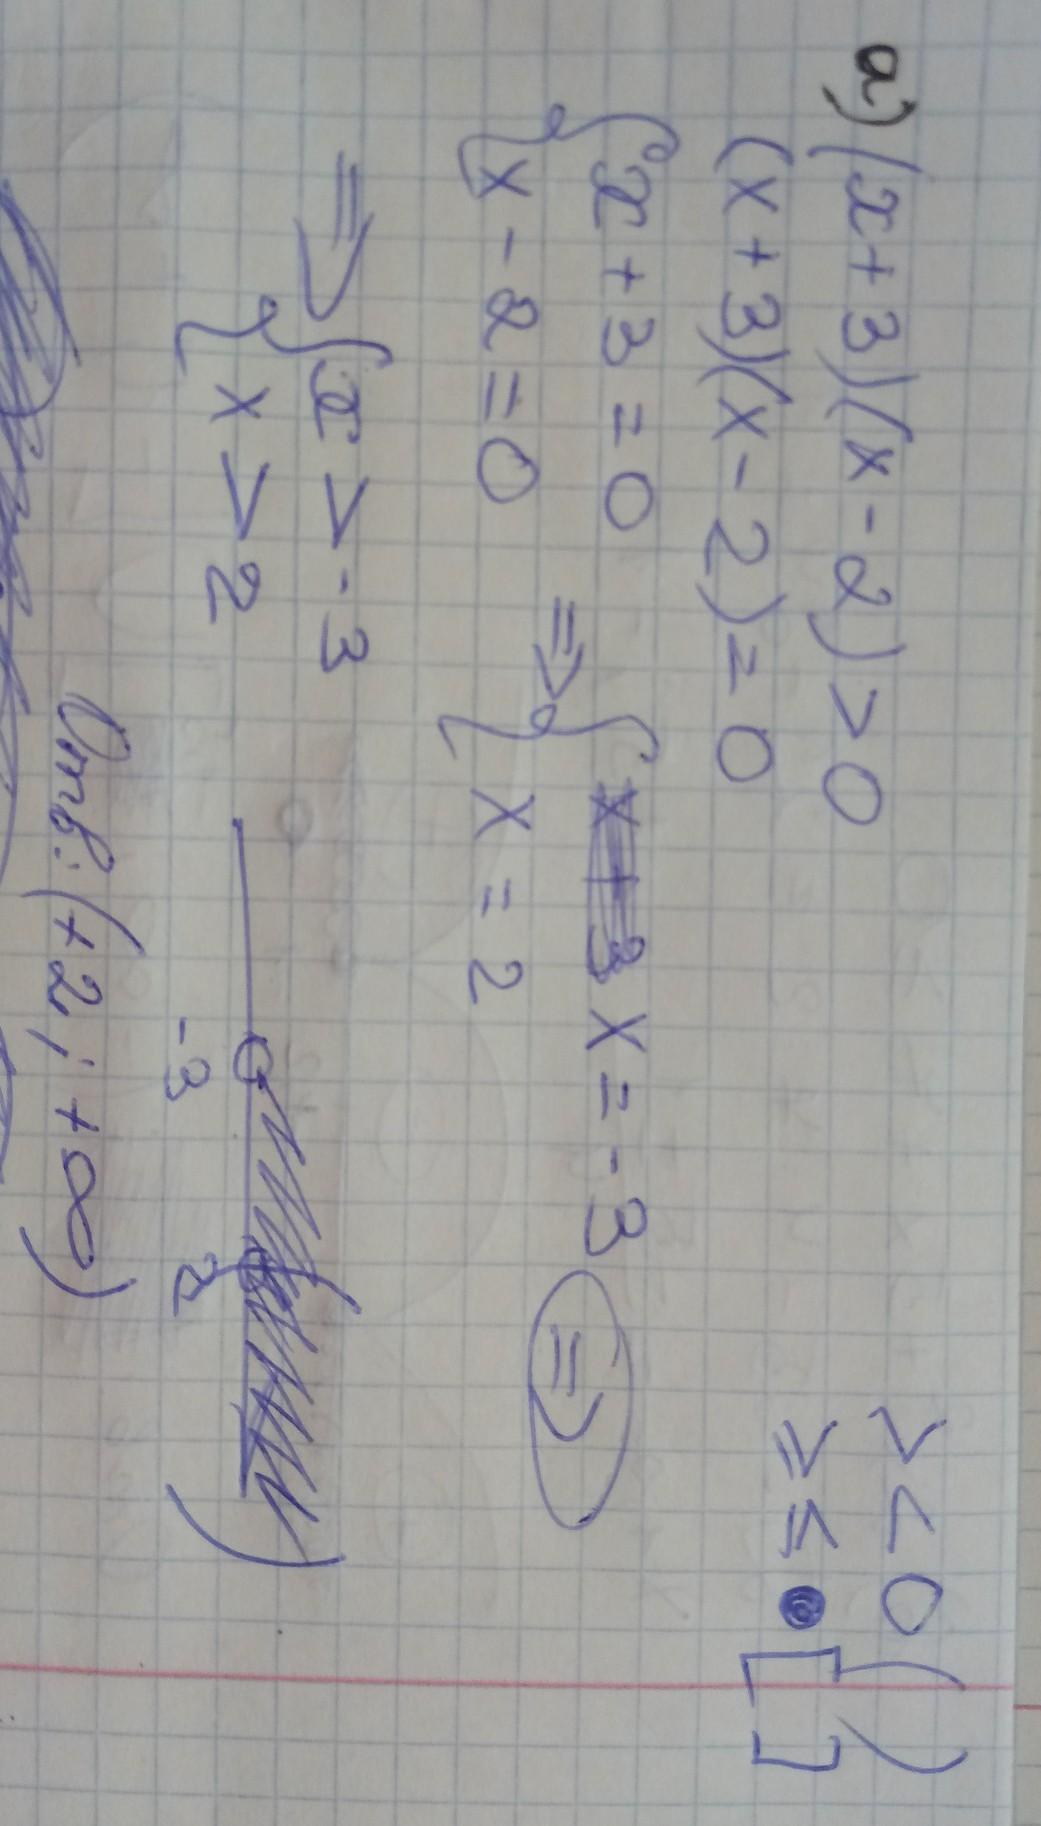 а) (x+3)(x-2)>0
> < ○ ( )
(x+3)(x-2)=0
≥ ≤ ● [ ]
{ x+3=0 ⇒ { x=-3 ⇒
x-2=0 x=2
⇒ { x>-3
x>2
-3 2 )
Отв: (+2; +∞)